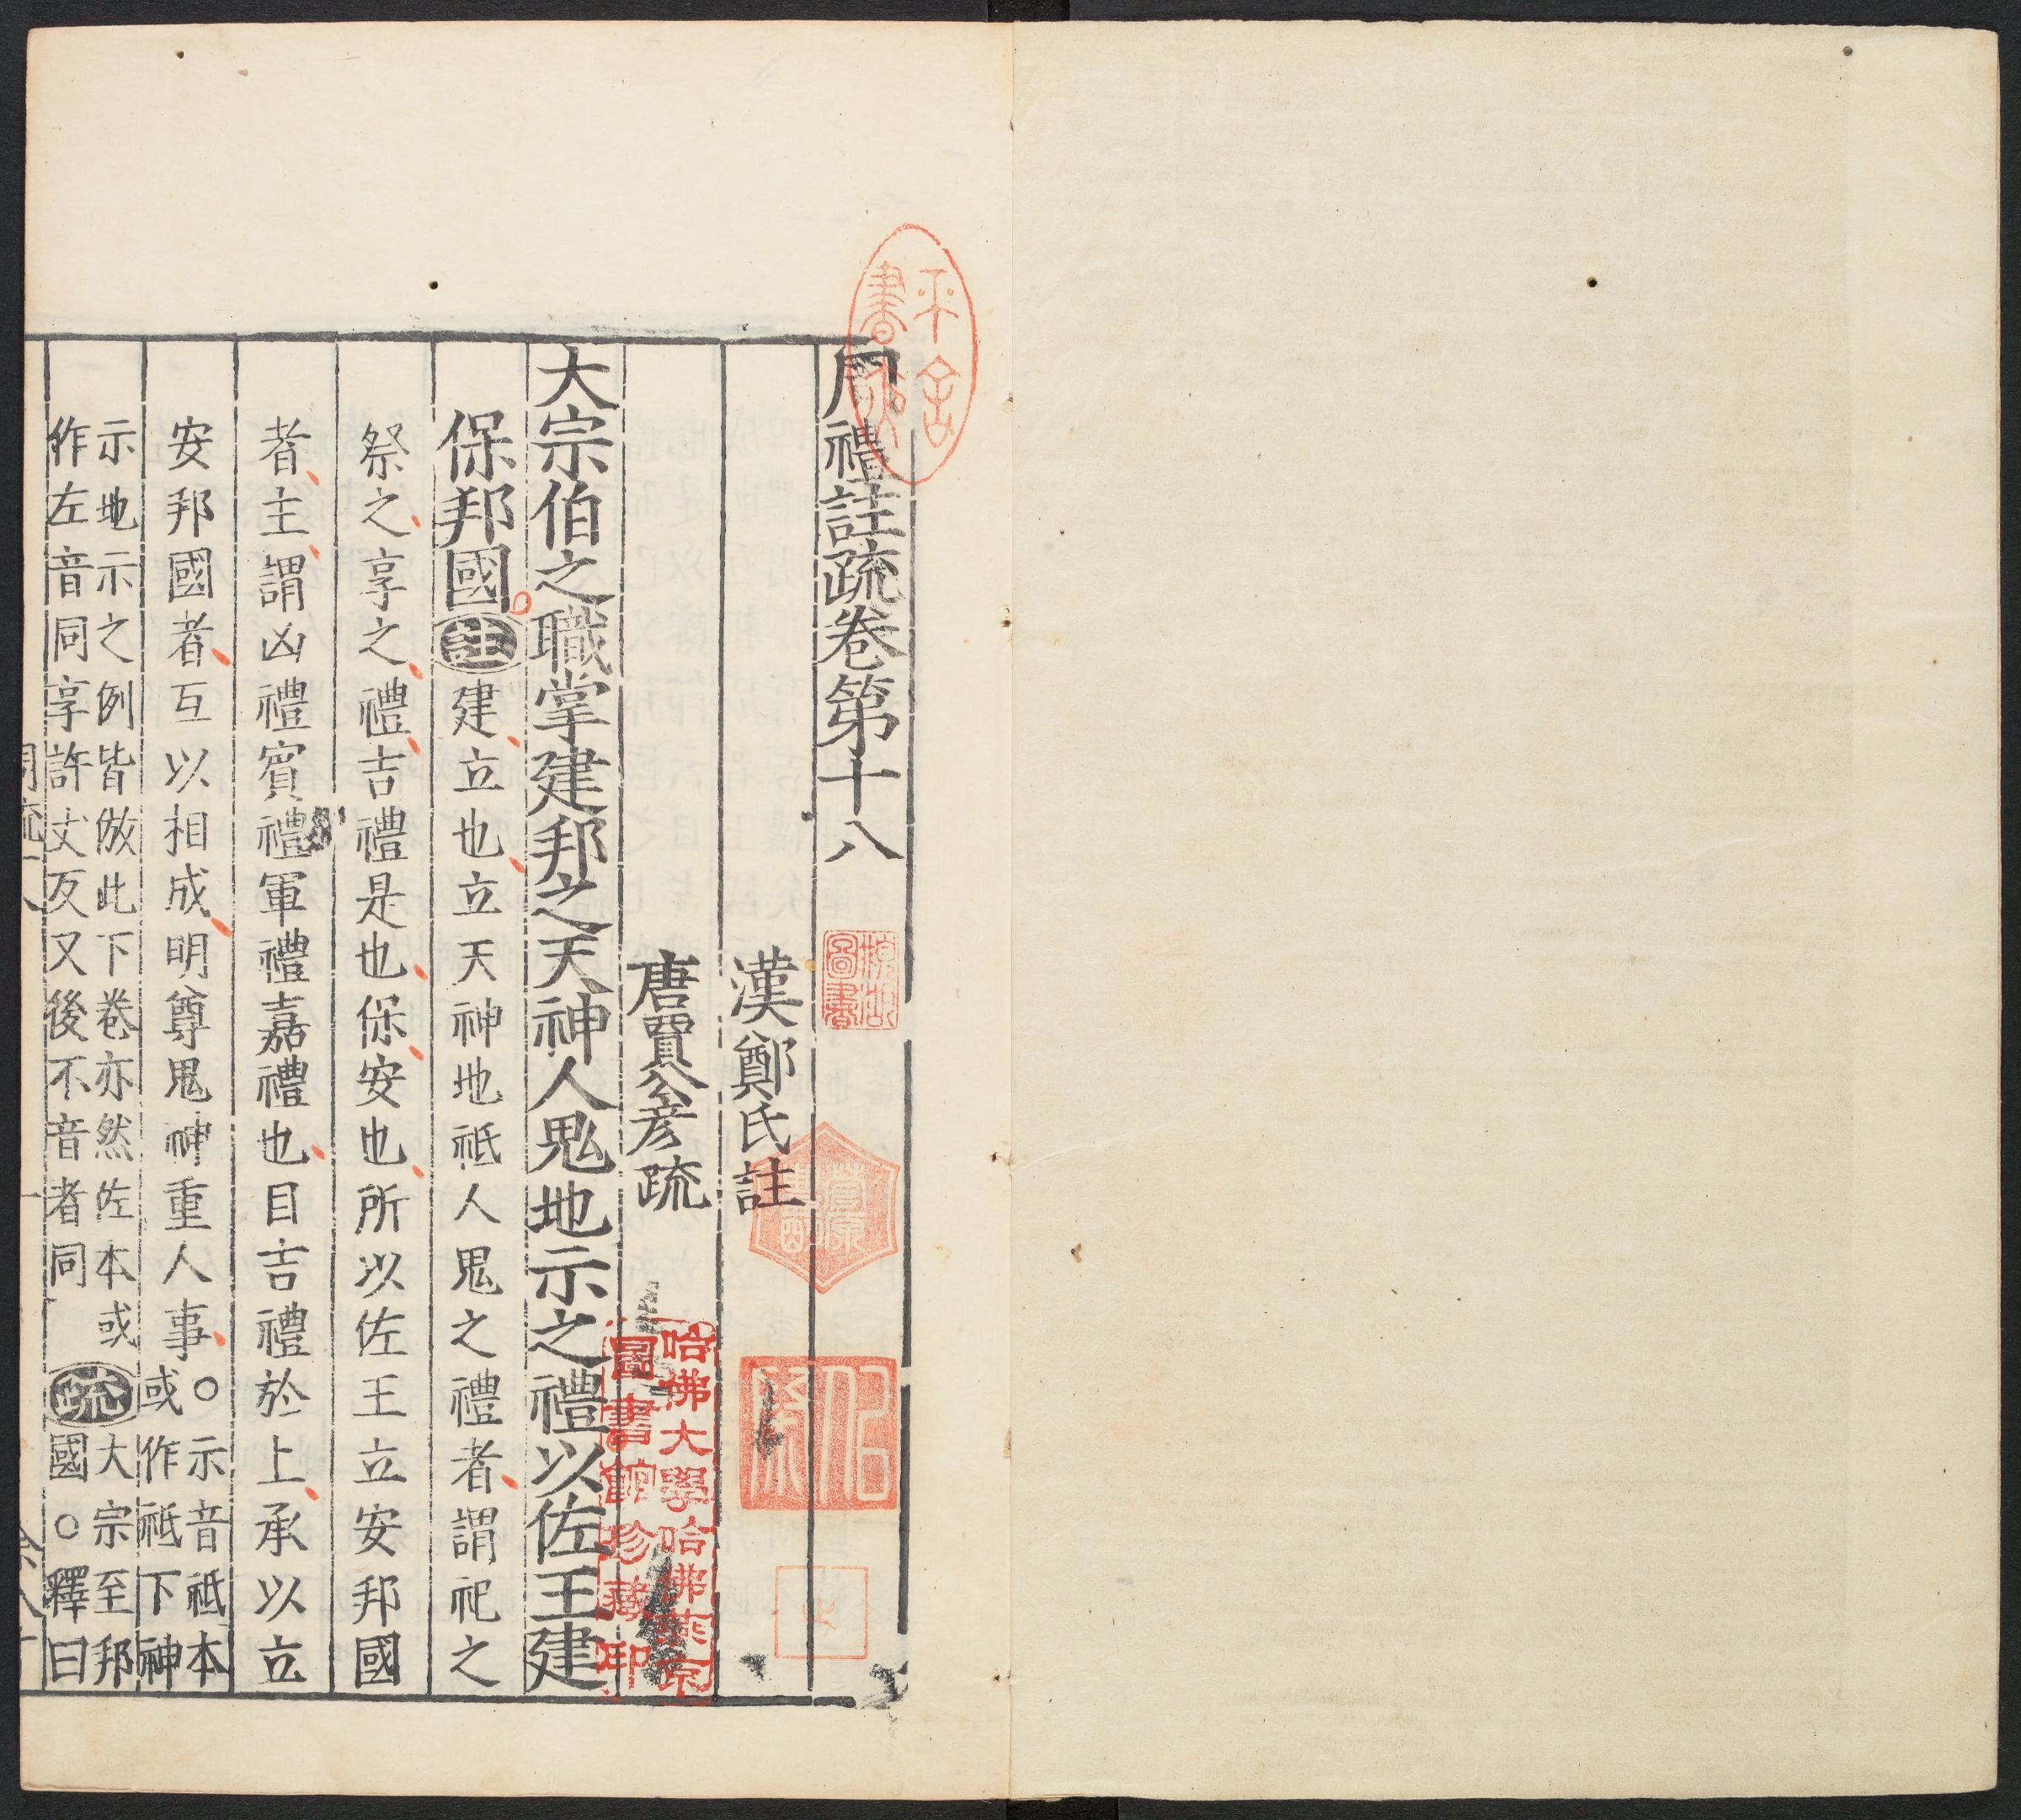 周禮註疏卷第十八
漢鄭氏註
唐賈公彥疏
大宗伯之職掌建邦之天神人鬼地示之禮以佐王建
保邦國註建立也立天神地祗人鬼之禮者謂祀之
祭之享之禮吉禮是也保安也所以佐王立安邦國
者主謂凶禮賓禮軍禮嘉禮也目吉禮於上承以立
安邦國者互以相成明尊鬼神重人事○示音祗本
或作祗下神
示地示之例皆倣此下卷亦然佐本或
作左音同享許丈反又後不音者同
疏大宗至邦
國○釋曰
哈佛大學哈佛燕京
圖書館珍藏印